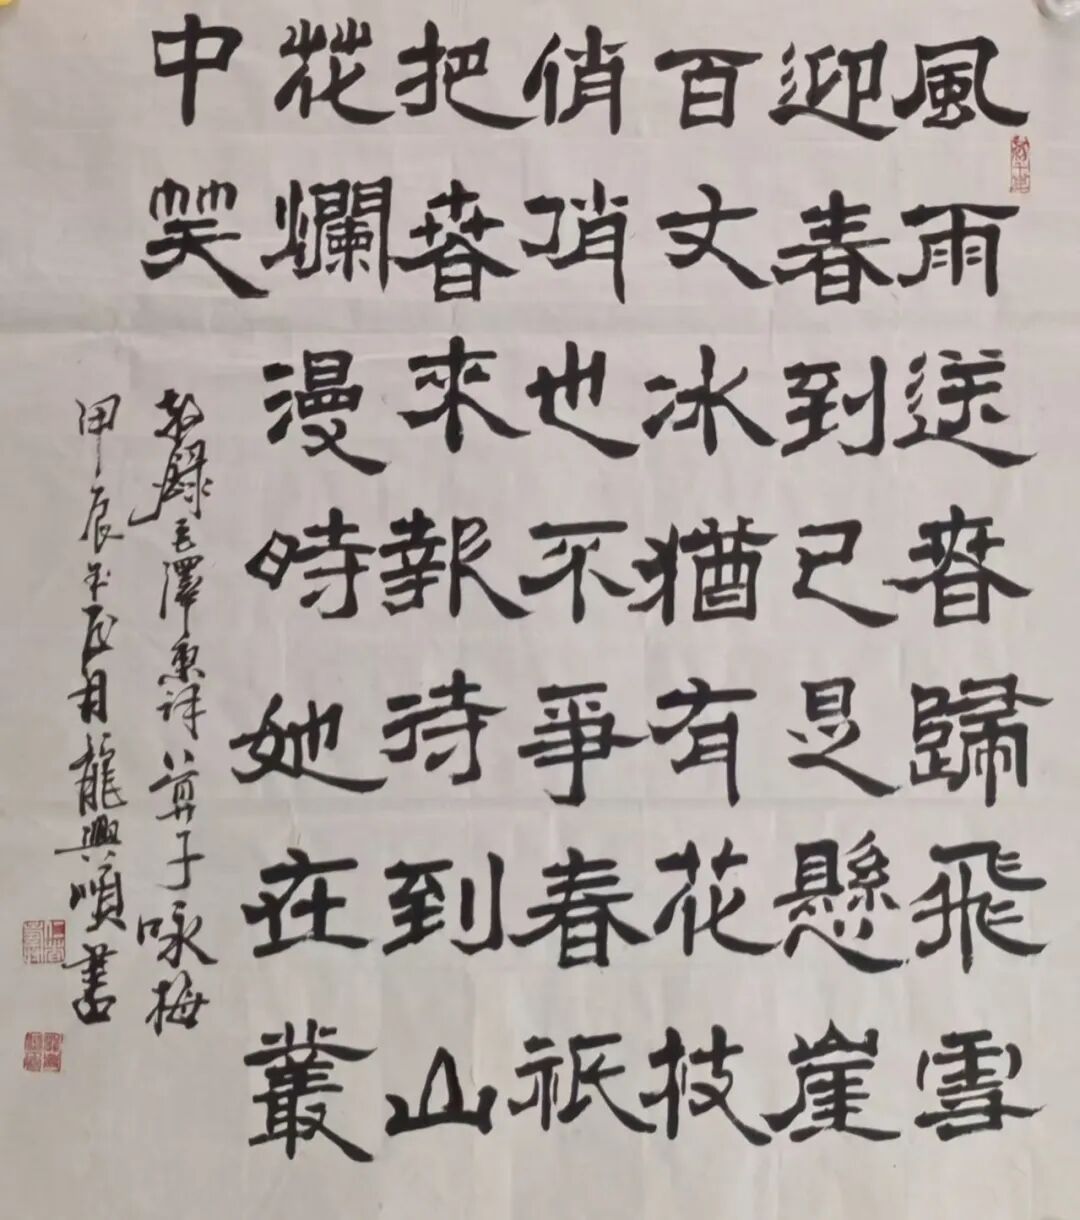 風雨送春歸飛雪
迎春到已是懸崖
百丈冰猶有花枝
俏俏也不爭春祇
把春來報待到山
花爛漫時她在叢
中笑
敬錄毛澤東詩卜算子咏梅
甲辰年月龍興書